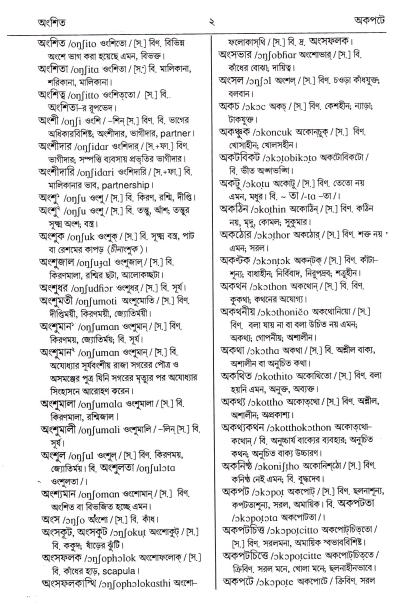 অংশিত
২
অকপটে
অংশিত /oŋʃito ওংশিতো / [স.] বিণ. বিভিন্ন
অংশে ভাগ করা হয়েছে এমন, বিভক্ত।
অংশিতা /oŋʃita ওংশিতা / [স.] বি. মালিকানা,
শরিকানা, মালিকানা।
অংশিত্ব /oŋʃitto ওংশিত্‌তো / [স.] বি.,
অংশিতা-র রূপভেদ।
অংশী /oŋʃi ওংশি / –শিন্ [স.] বিণ. বি. ভাগের
অধিকারবিশিষ্ট; অংশীদার, ভাগীদার, partner।
অংশীদার /oŋʃidar ওংশিদার্ / [স.+ফা.] বিণ.
ভাগীদার; সম্পত্তি ব্যবসায় প্রভৃতির ভাগীদার।
অংশীদারি /oŋʃidari ওংশিদারি / [স.+ফা.] বি.
মালিকানার ভাব, partnership।
অংশু /oŋʃu ওংশু / [স.] বি. কিরণ, রশ্মি, দীপ্তি।
অংশু /oŋʃu ওংশু / [স.] বি. তন্তু, আঁশ; তন্তুর
সূক্ষ্ম অংশ; বস্ত্র।
অংশুক /oŋʃuk ওংশুক্ / [স.] বি. সূক্ষ্ম বস্ত্র, পাট
বা রেশমের কাপড় (চীনাংশুক)।
অংশুজাল /oŋʃuɟal ওংশুজাল্ / [স.] বি.
কিরণমালা, রশ্মির ছটা, আলোকচ্ছটা।
অংশুধর /oŋʃudɦor ওংশুধর্ / [স.] বি. সূর্য।
অংশুমতী /oŋʃumoti ওংশুমোতি / [স.] বিণ.
দীপ্তিময়ী, কিরণময়ী, জ্যোতির্ময়ী।
অংশুমান /oŋʃuman ওংশুমান্ / [স.] বিণ.
কিরণময়, জ্যোতির্ময়; বি. সূর্য।
অংশুমান /oŋʃuman ওংশুমান্ / [স.] বি.
অযোধ্যার সূর্যবংশীয় রাজা সগরের পৌত্র ও
অসমঞ্জের পুত্র যিনি সগরের মৃত্যুর পর অযোধ্যার
সিংহাসনে আরোহণ করেন।
অংশুমালা /oŋʃumala ওংশুমালা / [স.] বি.
কিরণমালা, রশ্মিজাল।
অংশুমালী /oŋʃumali ওংশুমালি / –লিন্ [স.] বি.
সূর্য।
অংশুল /oŋʃul ওংশুল্ / [স.] বিণ. কিরণময়,
জ্যোতির্ময়। বি. অংশুলতা /oŋʃulɔta
ওংশুলতা /।
অংশ্যমান /oŋʃoman ওংশোমান্ / [স.] বিণ.
অংশিত বা বিভাজিত হচ্ছে এমন।
অংস /ɔŋʃo অংশো / [স.] বি. কাঁধ।
অংসকূট, অংসকুট /ɔŋʃokuʈ অংশোকুট্ / [স.]
বি. ককুদ; ষাঁড়ের ঝুঁটি।
অংসফলক /ɔŋʃopholɔk অংশোফলোক্ / [স.]
বি. কাঁধের হাড়, scapula।
অংসফলকাস্থি /ɔŋʃopholɔkasthi অংশো–
ফলোকাস্‌থি / [স.] বি. দ্র. অংসফলক।
অংসভার /ɔŋʃobɦar অংশোভার্ / [স.] বি.
কাঁধের বোঝা; দায়িত্ব।
অংসল /ɔŋʃɔl অংশল্ / [স.] বিণ. চওড়া কাঁধযুক্ত;
বলবান।
অকচ /ɔkɔc অকচ্ / [স.] বিণ. কেশহীন; ন্যাড়া;
টাকযুক্ত।
অকঞ্চুক /ɔkoncuk অকোন্‌চুক্ / [স.] বিণ.
খোসাহীন; খোলসহীন।
অকটবিকট /ɔkɔʈobikɔʈo অকটোবিকটো /
বি. ভীত অঙ্গভঙ্গি।
অকটু /ɔkoʈu অকোটু / [স.] বিণ. তেতো নয়
এমন, মধুর। বি. – তা /-ta –তা /।
অকঠিন /ɔkoʈhin অকোঠিন্ / [স.] বিণ. কঠিন
নয়, মৃদু, কোমল; সুকুমার।
অকঠোর /ɔkɔʈhor অকঠোর্ / [স.] বিণ. শক্ত নয়
এমন; সরল।
অকণ্টক /ɔkɔnʈɔk অকন্‌টক্ / [স.] বিণ. কাঁটা-
শূন্য; বাধাহীন; নির্বিবাদ, নিরুপদ্রব; শত্রুহীন।
অকথন /ɔkɔthon অকথোন্ / [স.] বি. বিণ.
কুকথা; কথনের অযোগ্য।
অকথনীয় /ɔkɔthoniẽo অকথোনিয়ো / [স.]
বিণ. বলা যায় না বা বলা উচিত নয় এমন;
অকথ্য; গোপনীয়; অশালীন।
অকথা /ɔkɔtha অকথা / [স.] বি. অশ্লীল বাক্য,
অশালীন বা অনুচিত কথা।
অকথিত /ɔkothito অকোথিতো / [স.] বিণ. বলা
হয়নি এমন, অনুক্ত, অব্যক্ত।
অকথ্য /ɔkottho অকোত্‌থো / [স.] বিণ. অশ্লীল,
অশালীন; অপ্রকাশ্য।
অকথ্যকথন /ɔkotthokɔthon অকোত্‌থো–
কথোন্ / বি. অনুচ্চার্য বাক্যের ব্যবহার; অনুচিত
কথন; অনুচিত বাক্য উচ্চারণ।
অকনিষ্ঠ /ɔkoniʃʈho অকোনিশ্‌ঠো / [স.] বিণ.
কনিষ্ঠ নেই এমন; বি. বুদ্ধদেব।
অকপট /ɔkɔpoʈ অকপোট্ / [স.] বিণ. ছলনাশূন্য,
কপটতাশূন্য, সরল, অমায়িক। বি. অকপটতা
/ɔkɔpoʈɔta অকপোটতা /।
অকপটচিত্ত /ɔkɔpoʈcitto অকপোট্‌চিত্‌তো /
[স.] বিণ. সরলমনা, অমায়িক স্বভাববিশিষ্ট।
অকপটচিত্তে /ɔkɔpoʈcitte অকপোট্‌চিত্‌তে /
ক্রিবিণ. সরল মনে, খোলা মনে; ছলনাহীনভাবে।
অকপটে /ɔkɔpoʈe অকপোটে / ক্রিবিণ. সরল